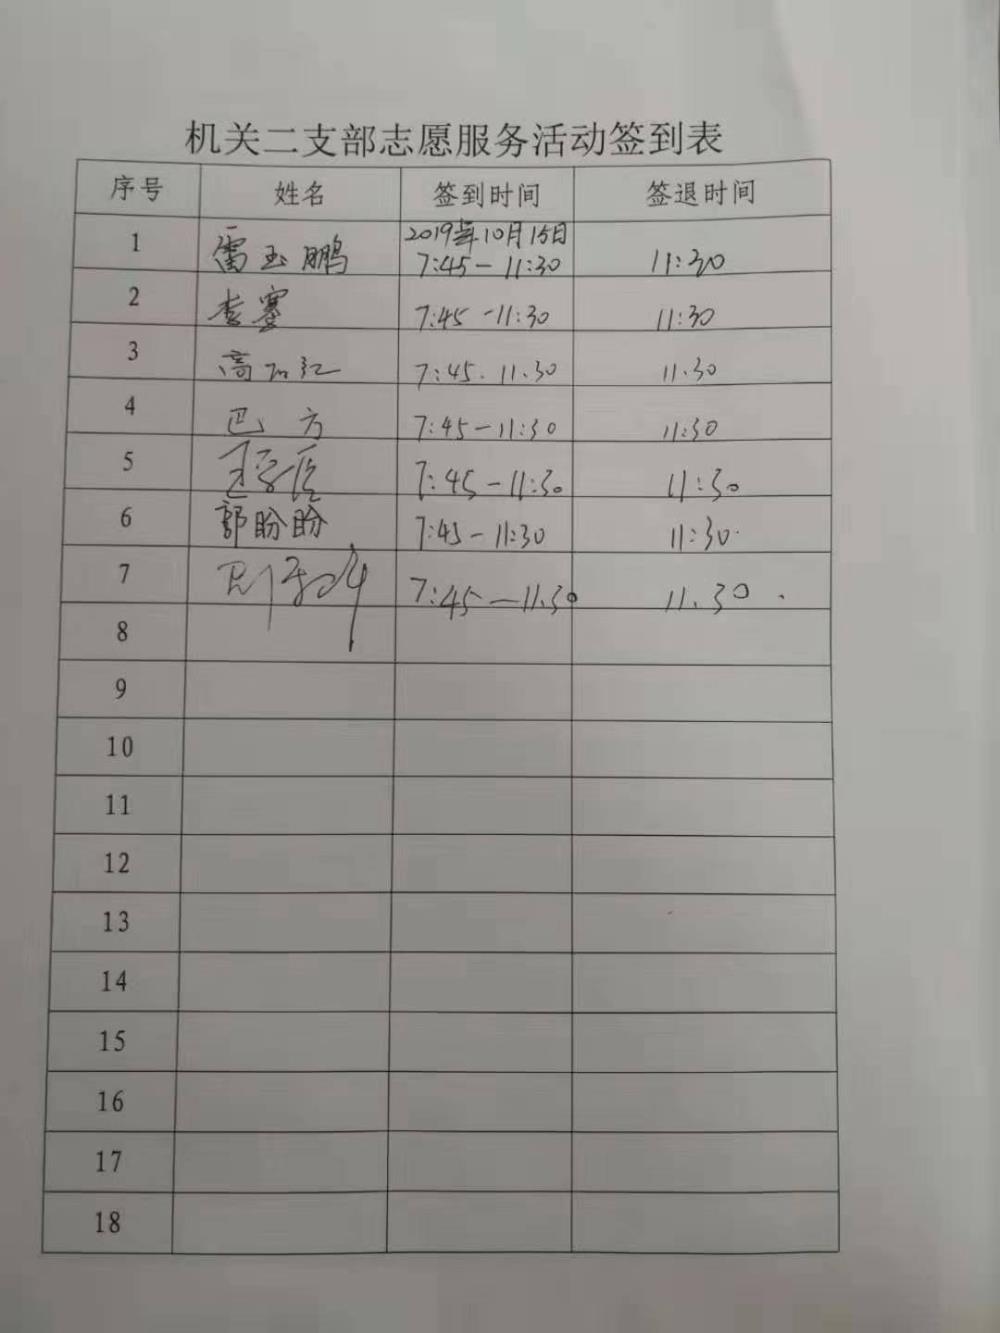 机关二支部志愿服务活动签到表
序号 姓名 签到时间 签退时间
1 雷玉鹏 2019年10月15日 7:45-11:30 11:30
2 李赛 7:45-11:30 11:30
3 高 江 7:45.11.30 11.30
4 巴方 7:45-11:30 11:30
5 7:45-11:30 11:30
6 郭盼盼 7:45-11:30 11:30
7 7:45-11.30 11.30
8
9
10
11
12
13
14
15
16
17
18